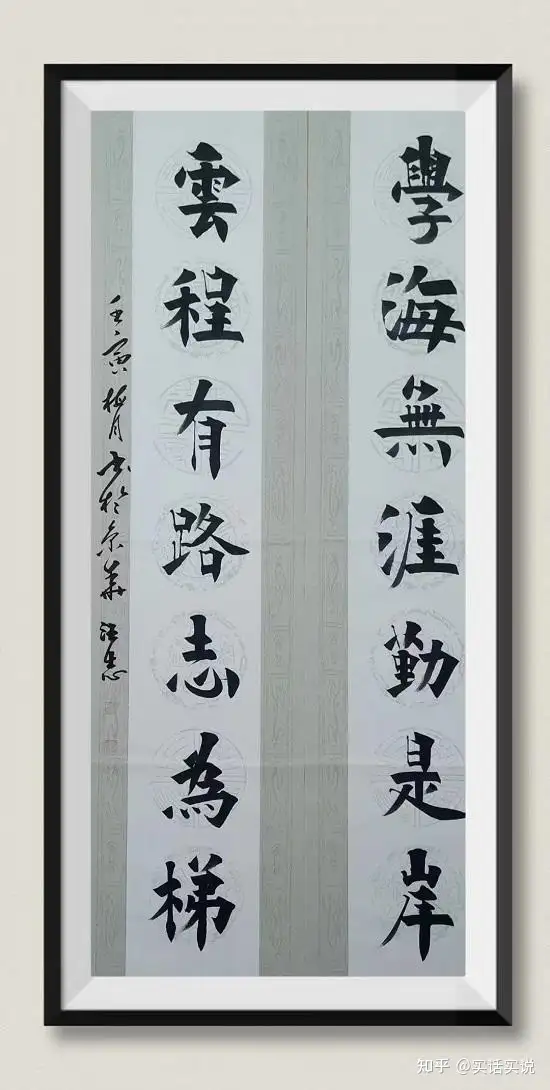 學海無涯勤是岸
雲程有路志為梯
壬寅梅月書於京華 汪志
知乎 @实话实说